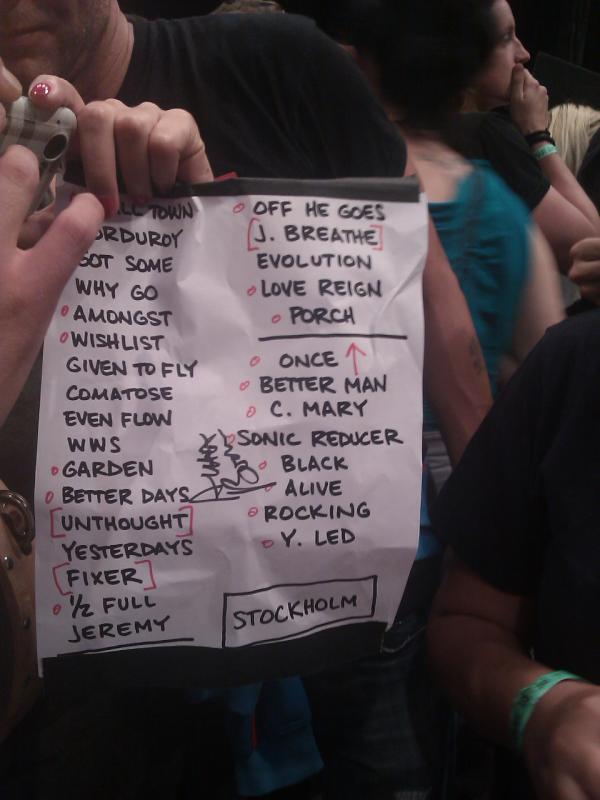 TOWN
CORDUROY
GOT SOME
WHY GO
AMONGST
WISHLIST
GIVEN TO FLY
COMATOSE
EVEN FLOW
WWS
GARDEN
BETTER DAYS
[UNTHOUGHT]
YESTERDAYS
[FIXER]
1/2 FULL
JEREMY
OFF HE GOES
[J. BREATHE]
EVOLUTION
LOVE REIGN
PORCH
ONCE ↑
BETTER MAN
C. MARY
SONIC REDUCER
BLACK
ALIVE
ROCKING
Y. LED
STOCKHOLM